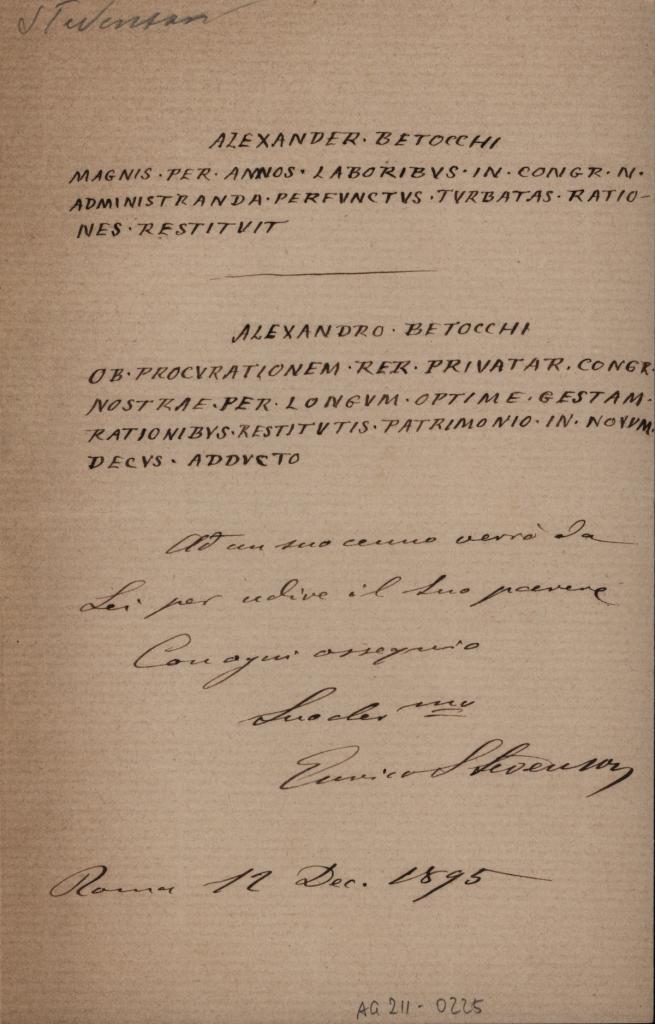 Stevenson
ALEXANDER · BETOCCHI
MAGNIS · PER · ANNOS · LABORIBVS · IN · CONGR · N ·
ADMINISTRANDA · PERFVNCTVS · TVRBATAS · RATIO-
NES · RESTITVIT
ALEXANDRO · BETOCCHI
OB · PROCVRATIONEM · RER · PRIVATAR · CONGR·
NOSTRAE · PER · LONGVM · OPTIME · GESTAM ·
RATIONIBVS · RESTITVTIS · PATRIMONIO · IN · NOVVM ·
DECVS · ADDVCTO
Ad un suo cenno verrò da
Lei per udire il suo parere
Con ogni ossequio
Suo dev mo
Enrico Stevenson
Roma 12 Dec. 1895
AG 211 - 0225